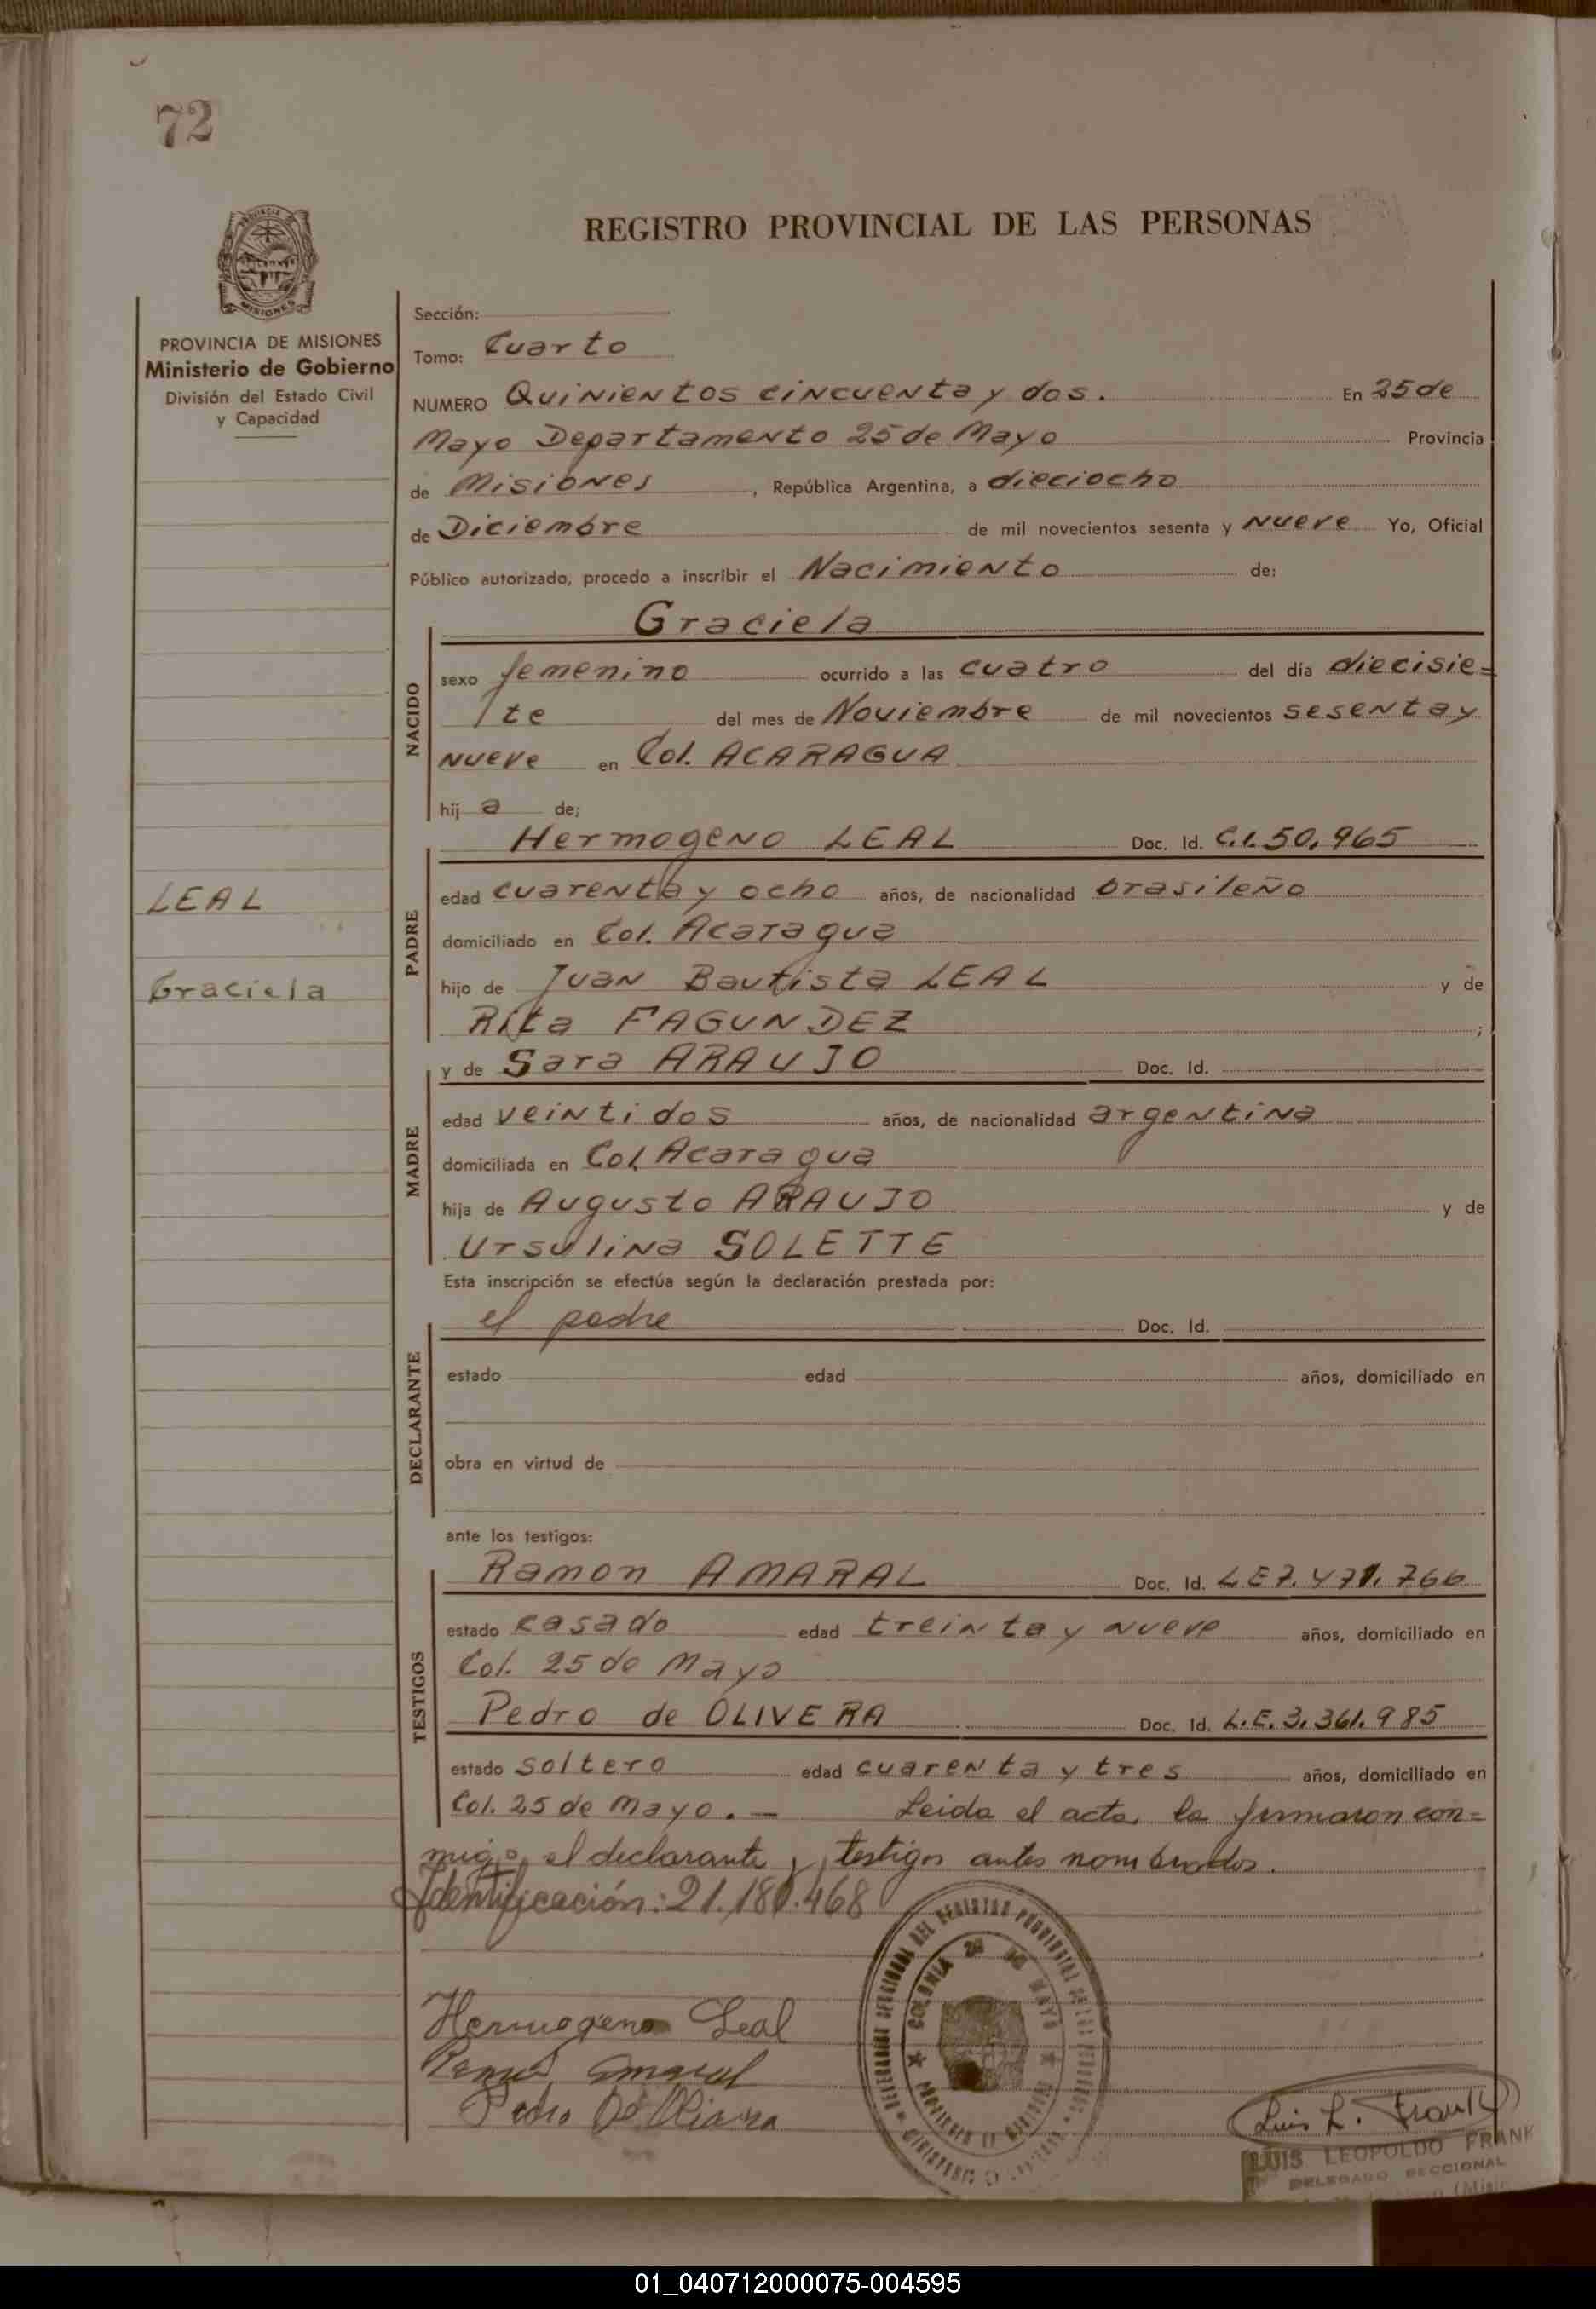 72
REGISTRO PROVINCIAL DE LAS PERSONAS
MISIONES
PROVINCIA DE MISIONES
Ministerio de Gobierno
División del Estado Civil
y Capacidad
LEAL
Graciela
Sección:
Tomo: Cuarto
NUMERO Quinientos cincuenta y dos. En 25 de
Mayo Departamento 25 de Mayo Provincia
de Misiones, República Argentina, a dieciocho
de Diciembre de mil novecientos sesenta y nueve Yo, Oficial
Público autorizado, procedo a inscribir el Nacimiento de:
NACIDO
Graciela
sexo femenino ocurrido a las cuatro del día diecisie=
/te del mes de Noviembre de mil novecientos sesenta y
nueve en Col. ACARAGUA
hij a de;
PADRE
Hermogeno LEAL Doc. Id. C.I.50.965
edad cuarenta y ocho años, de nacionalidad brasileño
domiciliado en Col. Acaragua
hijo de Juan Bautista LEAL y de
Rita FAGUNDEZ ;
MADRE
y de Sara ARAUJO Doc. Id.
edad veintidos años, de nacionalidad argentina
domiciliada en Col. Acaragua
hija de Augusto ARAUJO y de
Ursulina SOLETTE
Esta inscripción se efectúa según la declaración prestada por:
DECLARANTE
el padre Doc. Id.
estado edad años, domiciliado en
obra en virtud de
ante los testigos:
TESTIGOS
Ramon AMARAL Doc. Id. LE7.471.766
estado casado edad treinta y nueve años, domiciliado en
Col. 25 de Mayo
Pedro de OLIVERA Doc. Id. L.E.3.361.985
estado soltero edad cuarenta y tres años, domiciliado en
Col. 25 de Mayo.— Leida el acta, la firmaron con=
migo el declarante y testigos antes nombrados.
Identificación: 21.180.468
DEL REGISTRO PROVINCIAL DE LAS PERSONAS
COLONIA 25 DE MAYO
Hermogeno Leal
Ramon Amaral
Pedro De Olivera
Luis L. Frank
LUIS LEOPOLDO FRANK
DELEGADO SECCIONAL
01_040712000075-004595